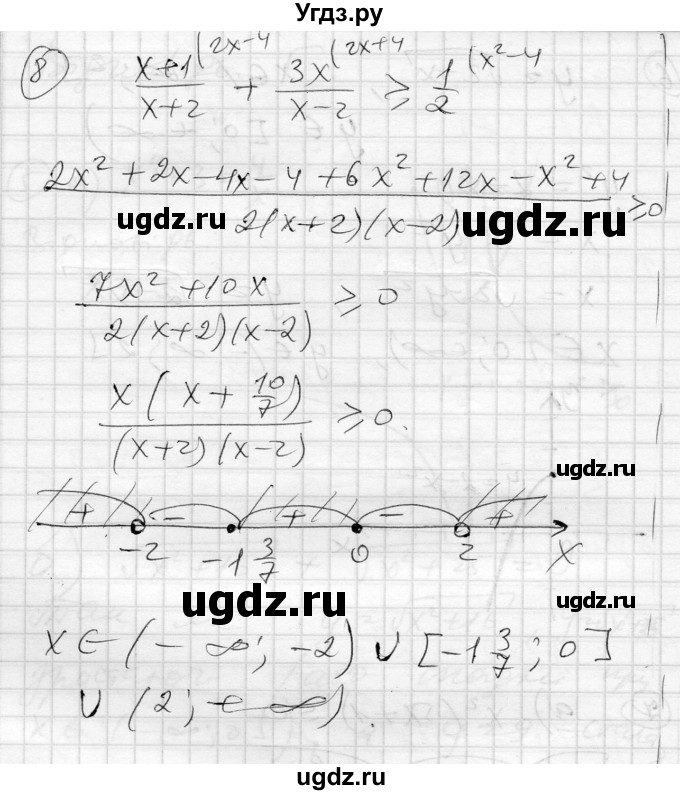 Угдз.ру
8 (x+1)/(x+2) (2x-4 + 3x/(x-2) (2x+4 ⩾ 1/2 (x²-4
(2x² + 2x - 4x - 4 + 6x² + 12x - x² + 4)/(2(x+2)(x-2)) ⩾ 0
ugdz.ru ugdz.ru
(7x² + 10x)/(2(x+2)(x-2)) ⩾ 0
x(x + 10/7)/((x+2)(x-2)) ⩾ 0.
ugdz.ru
+ - + - +
-2 -1 3/7 0 2 x
ugdz.ru ugdz.ru
x ∈ (-∞; -2) ∪ [-1 3/7; 0]
∪ (2; +∞).
ugdz.ru
ugdz.ru